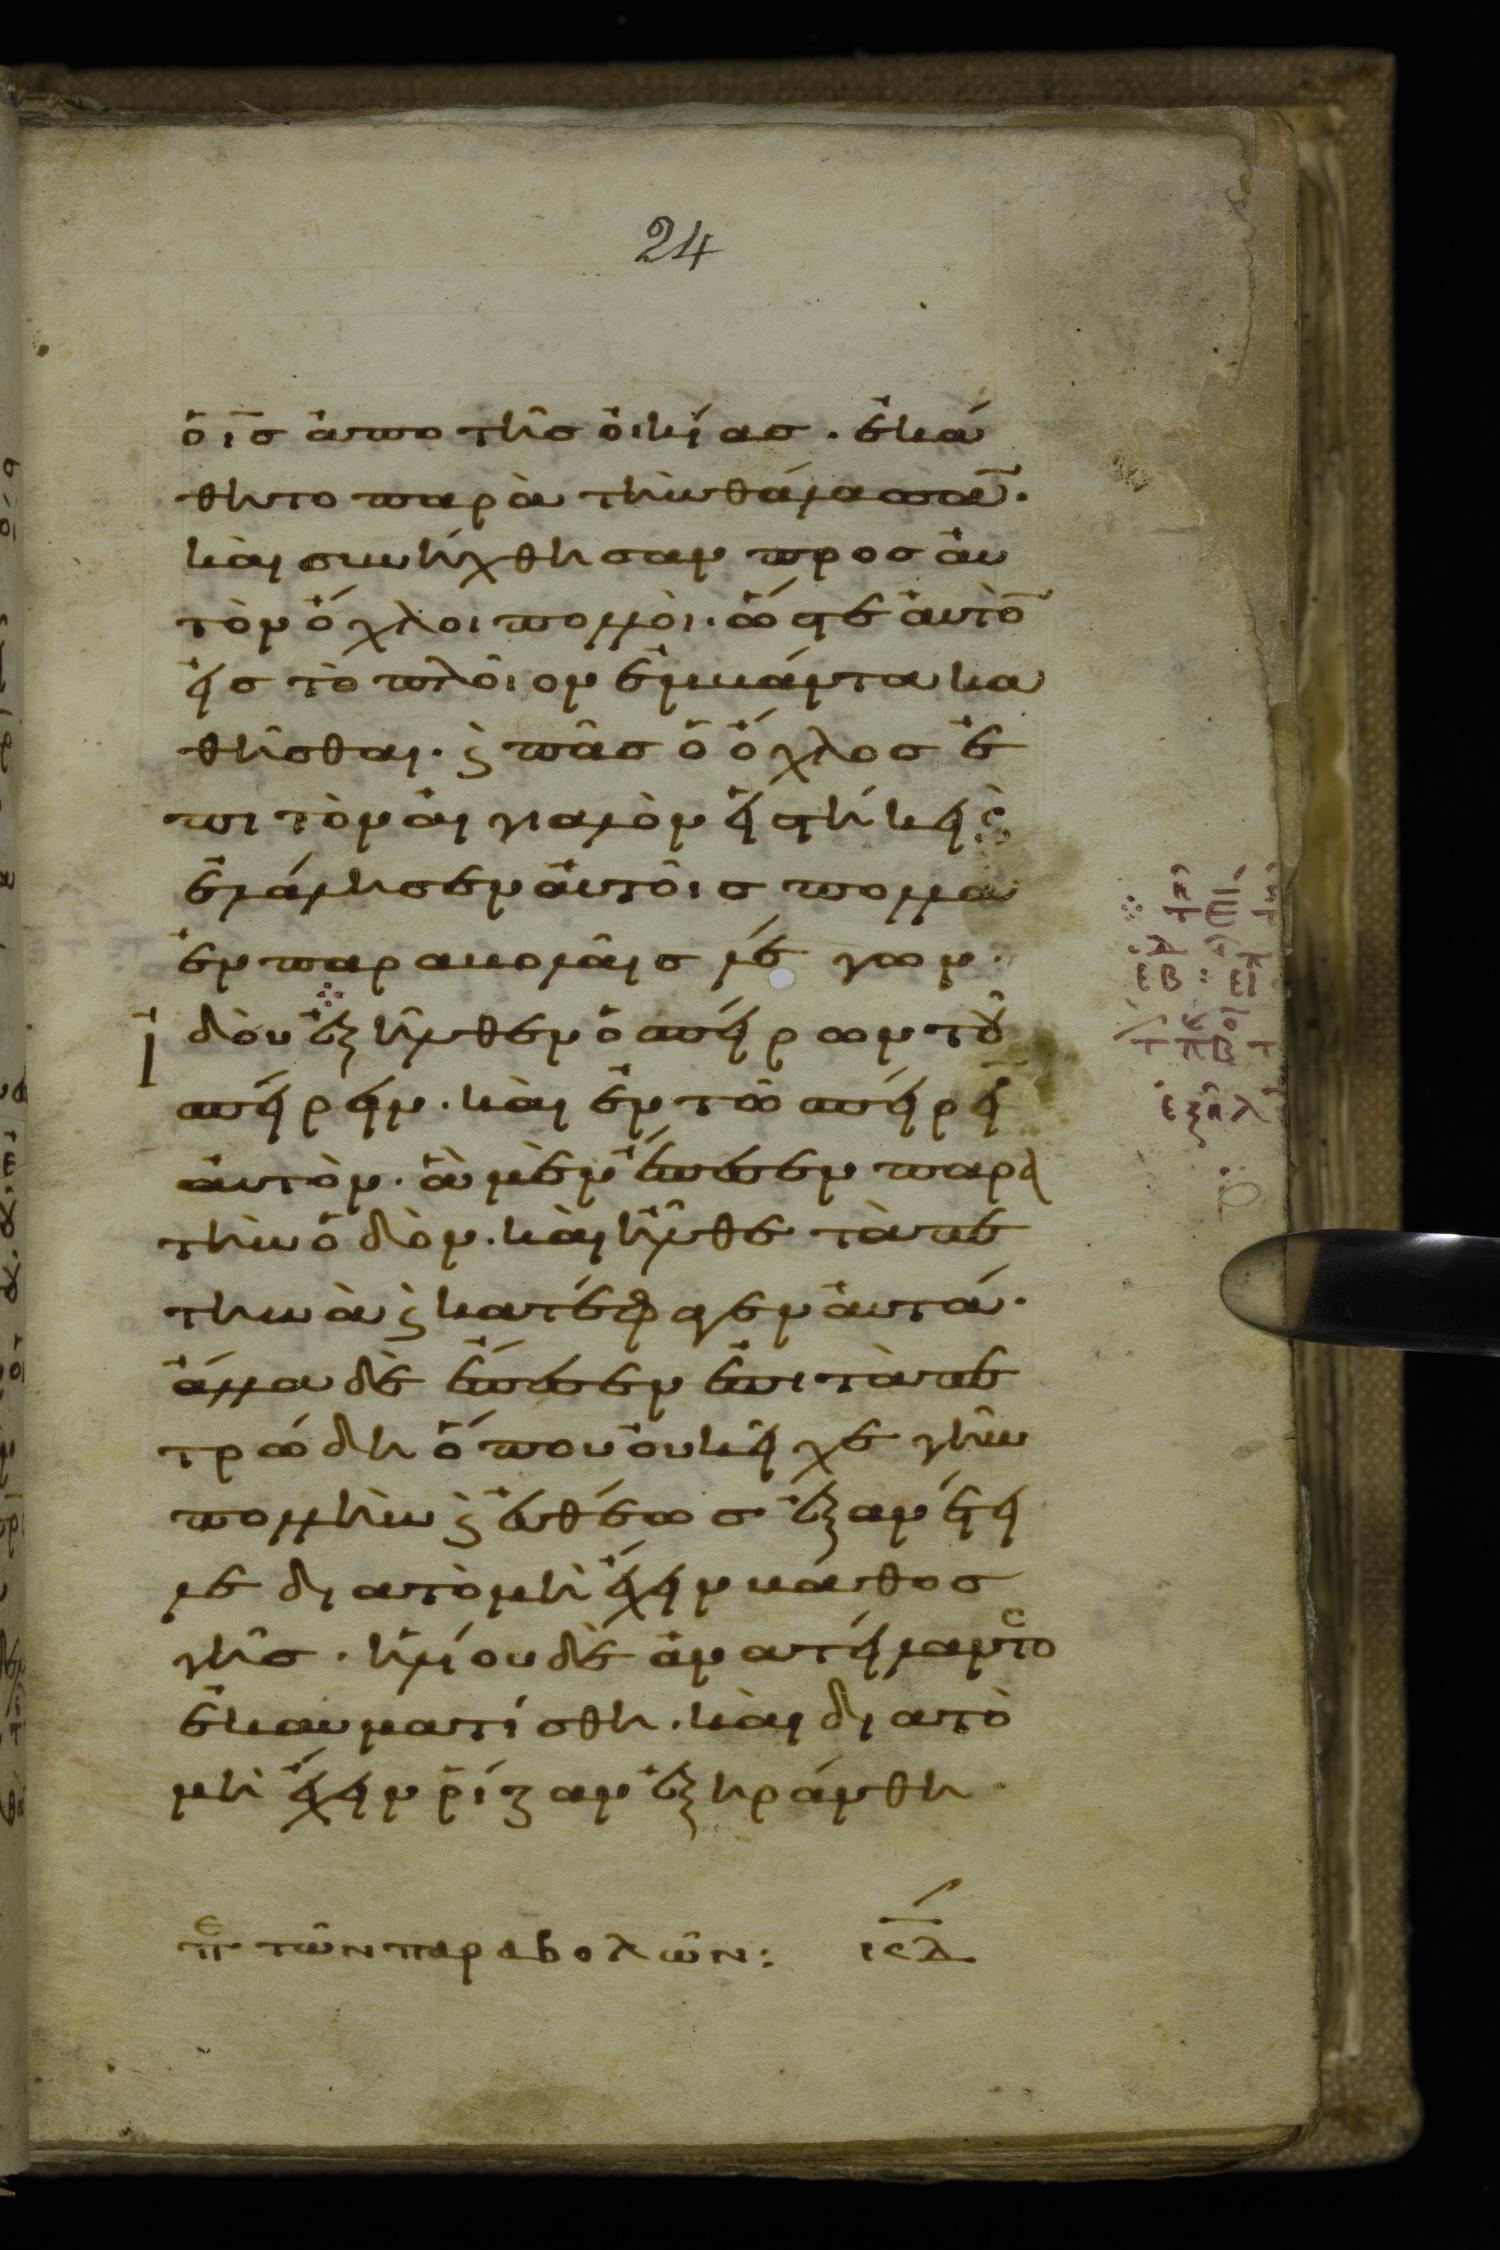 24
ὁ ι̅ς̅ ἀπο τῆς ὀικίας · ἐκά
θητο παρὰ τὴν θάλασσα̅ ·
καὶ συνήχθησαν προς ἀυ
τὸν ὄχλοι πολλοὶ · ὥστε ἀυτὸ̅
εἰς τὸ πλοῖον ἐμβάντα κα
θῆσθαι · ϗ πᾶς ὁ ὄχλος ἐ
πι τὸν ἀιγιαλὸν εἱστήκει ϗ
ἐλάλησεν ἀυτοῖς πολλα
ἐν παραβολαῖς λέγων ·
ἰδοὺ ἐξῆλθεν ὁ σπείρων τοῦ
σπείρειν · καὶ ἐν τῶ σπείρειν
ἀυτὸν · ἃ μὲν ἔπεσεν παρα
τὴν ὁδὸν · καὶ ἦλθε τὰ πε
τηνὰ ϗ κατέφαγεν ἀυτά ·
ἄλλα δὲ ἔπεσεν ἐπι τὰ πε
τρώδη ὅπου ὀυκ εἶχε γῆν
πολλὴν ϗ ἐυθέως ἐξανέτει
λε διατὸ μὴ ἔχειν βάθος
γῆς · ἡλίου δὲ ἀνατείλαντο̅ς
ἐκαυματίσθη · καὶ διατὸ
μὴ ἔχειν ῥίζαν ἐξηράνθη ·
πε τῶν παραβολῶν :